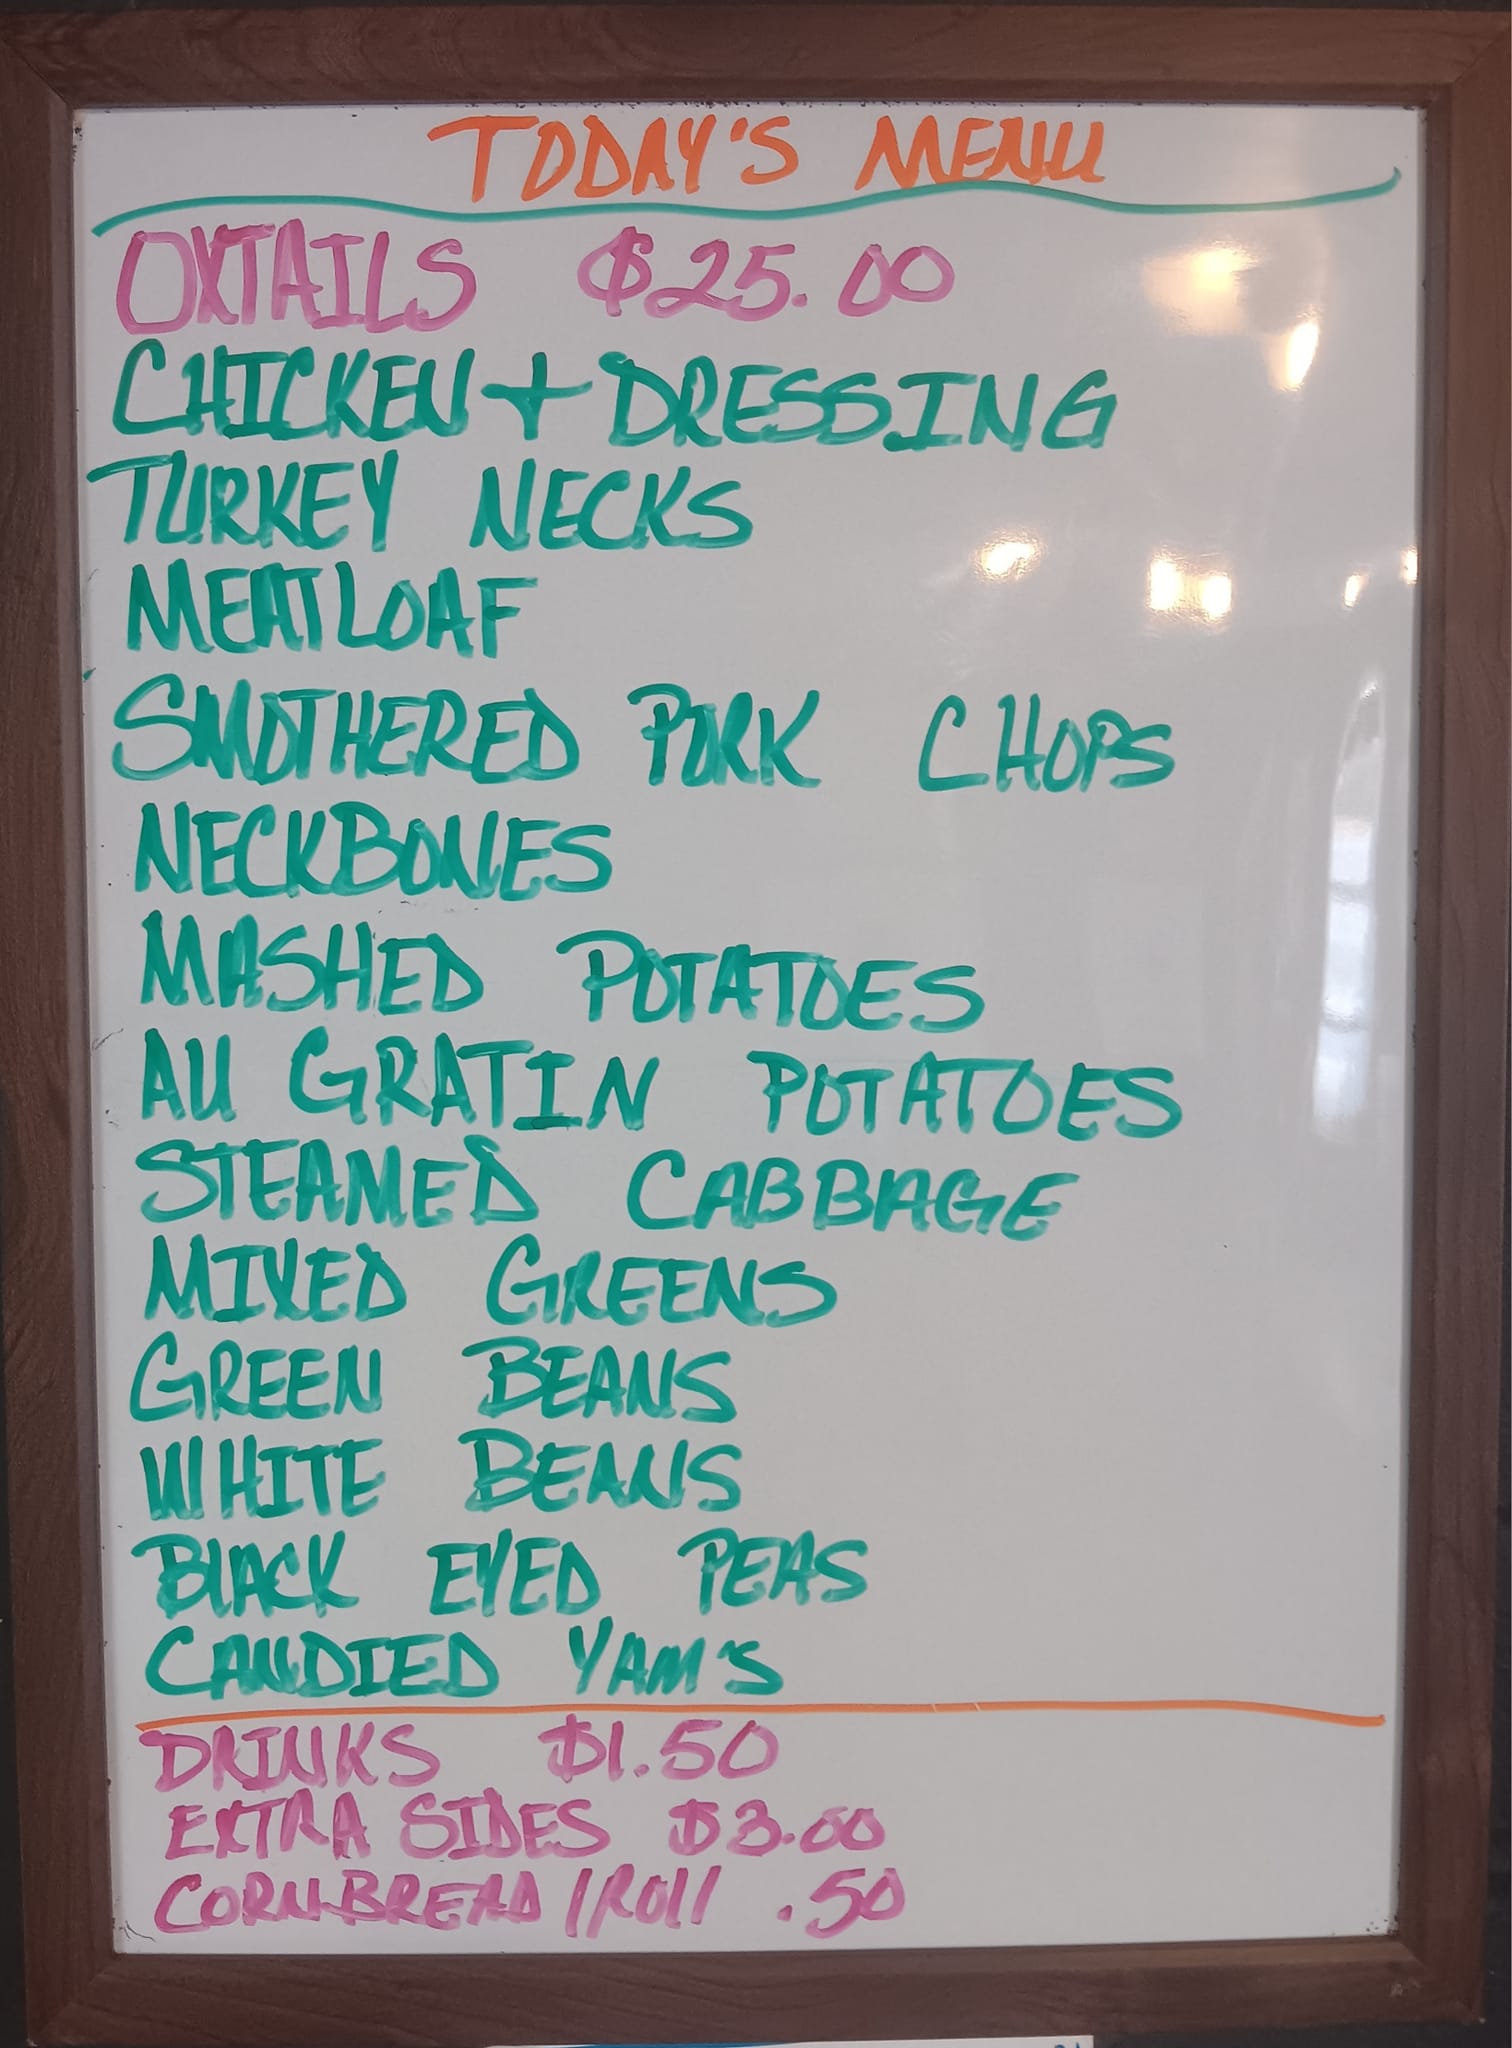 TODAY'S MENU
OXTAILS $25.00
CHICKEN + DRESSING
TURKEY NECKS
MEATLOAF
SMOTHERED PORK CHOPS
NECKBONES
MASHED POTATOES
AU GRATIN POTATOES
STEAMED CABBAGE
MIXED GREENS
GREEN BEANS
WHITE BEANS
BLACK EYED PEAS
CANDIED YAM'S
DRINKS $1.50
EXTRA SIDES $3.00
CORNBREAD/ROLL .50